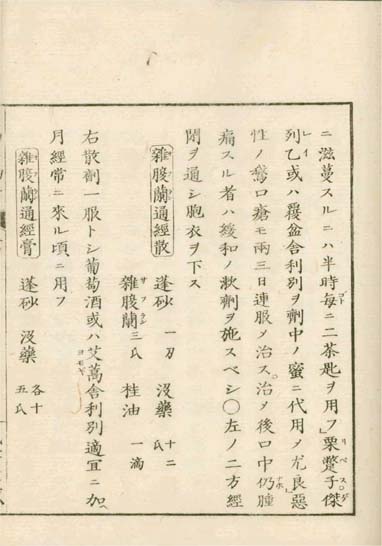 ニ滋蔓スルニハ半時毎ニ二茶匙ヲ用フ」栗蟞子傑
列乙或ハ覆盆舎利別ヲ劑中ノ蜜ニ代用メ尤良」惡
性ノ鵞口瘡モ兩三日連服メ治ス。治メ後口中仍腫
痛スル者ハ緩和ノ漱劑ヲ施スベシ〇左ノ二方經
閉ヲ通シ胞衣ヲ下ス
雜腹蘭通經散 蓬砂 一刀 沒藥 十二氏
雜腹蘭 三氏 桂油 一滴
右散劑一服トシ葡萄酒或ハ艾蒿舎利別適宜ニ加ヘ
月經常ニ來ル頃ニ用フ
雜腹蘭通經膏 蓬砂 沒藥 各十五氏